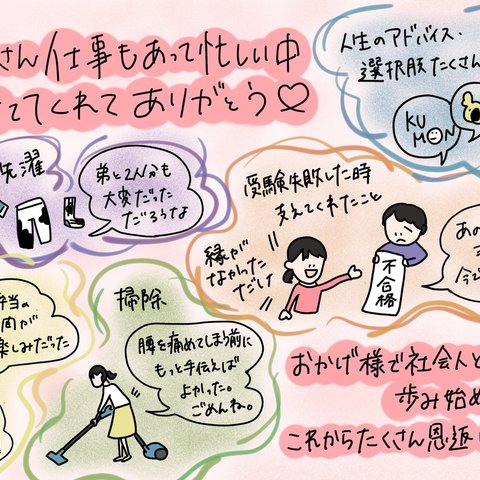 さん仕事もあって忙しい中
ててくれてありがとう♡
人生のアドバイス・
選択肢たくさん
KU
MON
洗濯
弟と2人分も
大変だった
だろうな
受験失敗した時
支えてくれたこと
縁が
なかった
だけ
不合格
あの
今で
弁当の
間が
楽しみだった
掃除
腰を痛めてしまう前に
もっと手伝えば
よかった。
ごめんね。
おかげ様で社会人と
歩み始め
これからたくさん恩返し